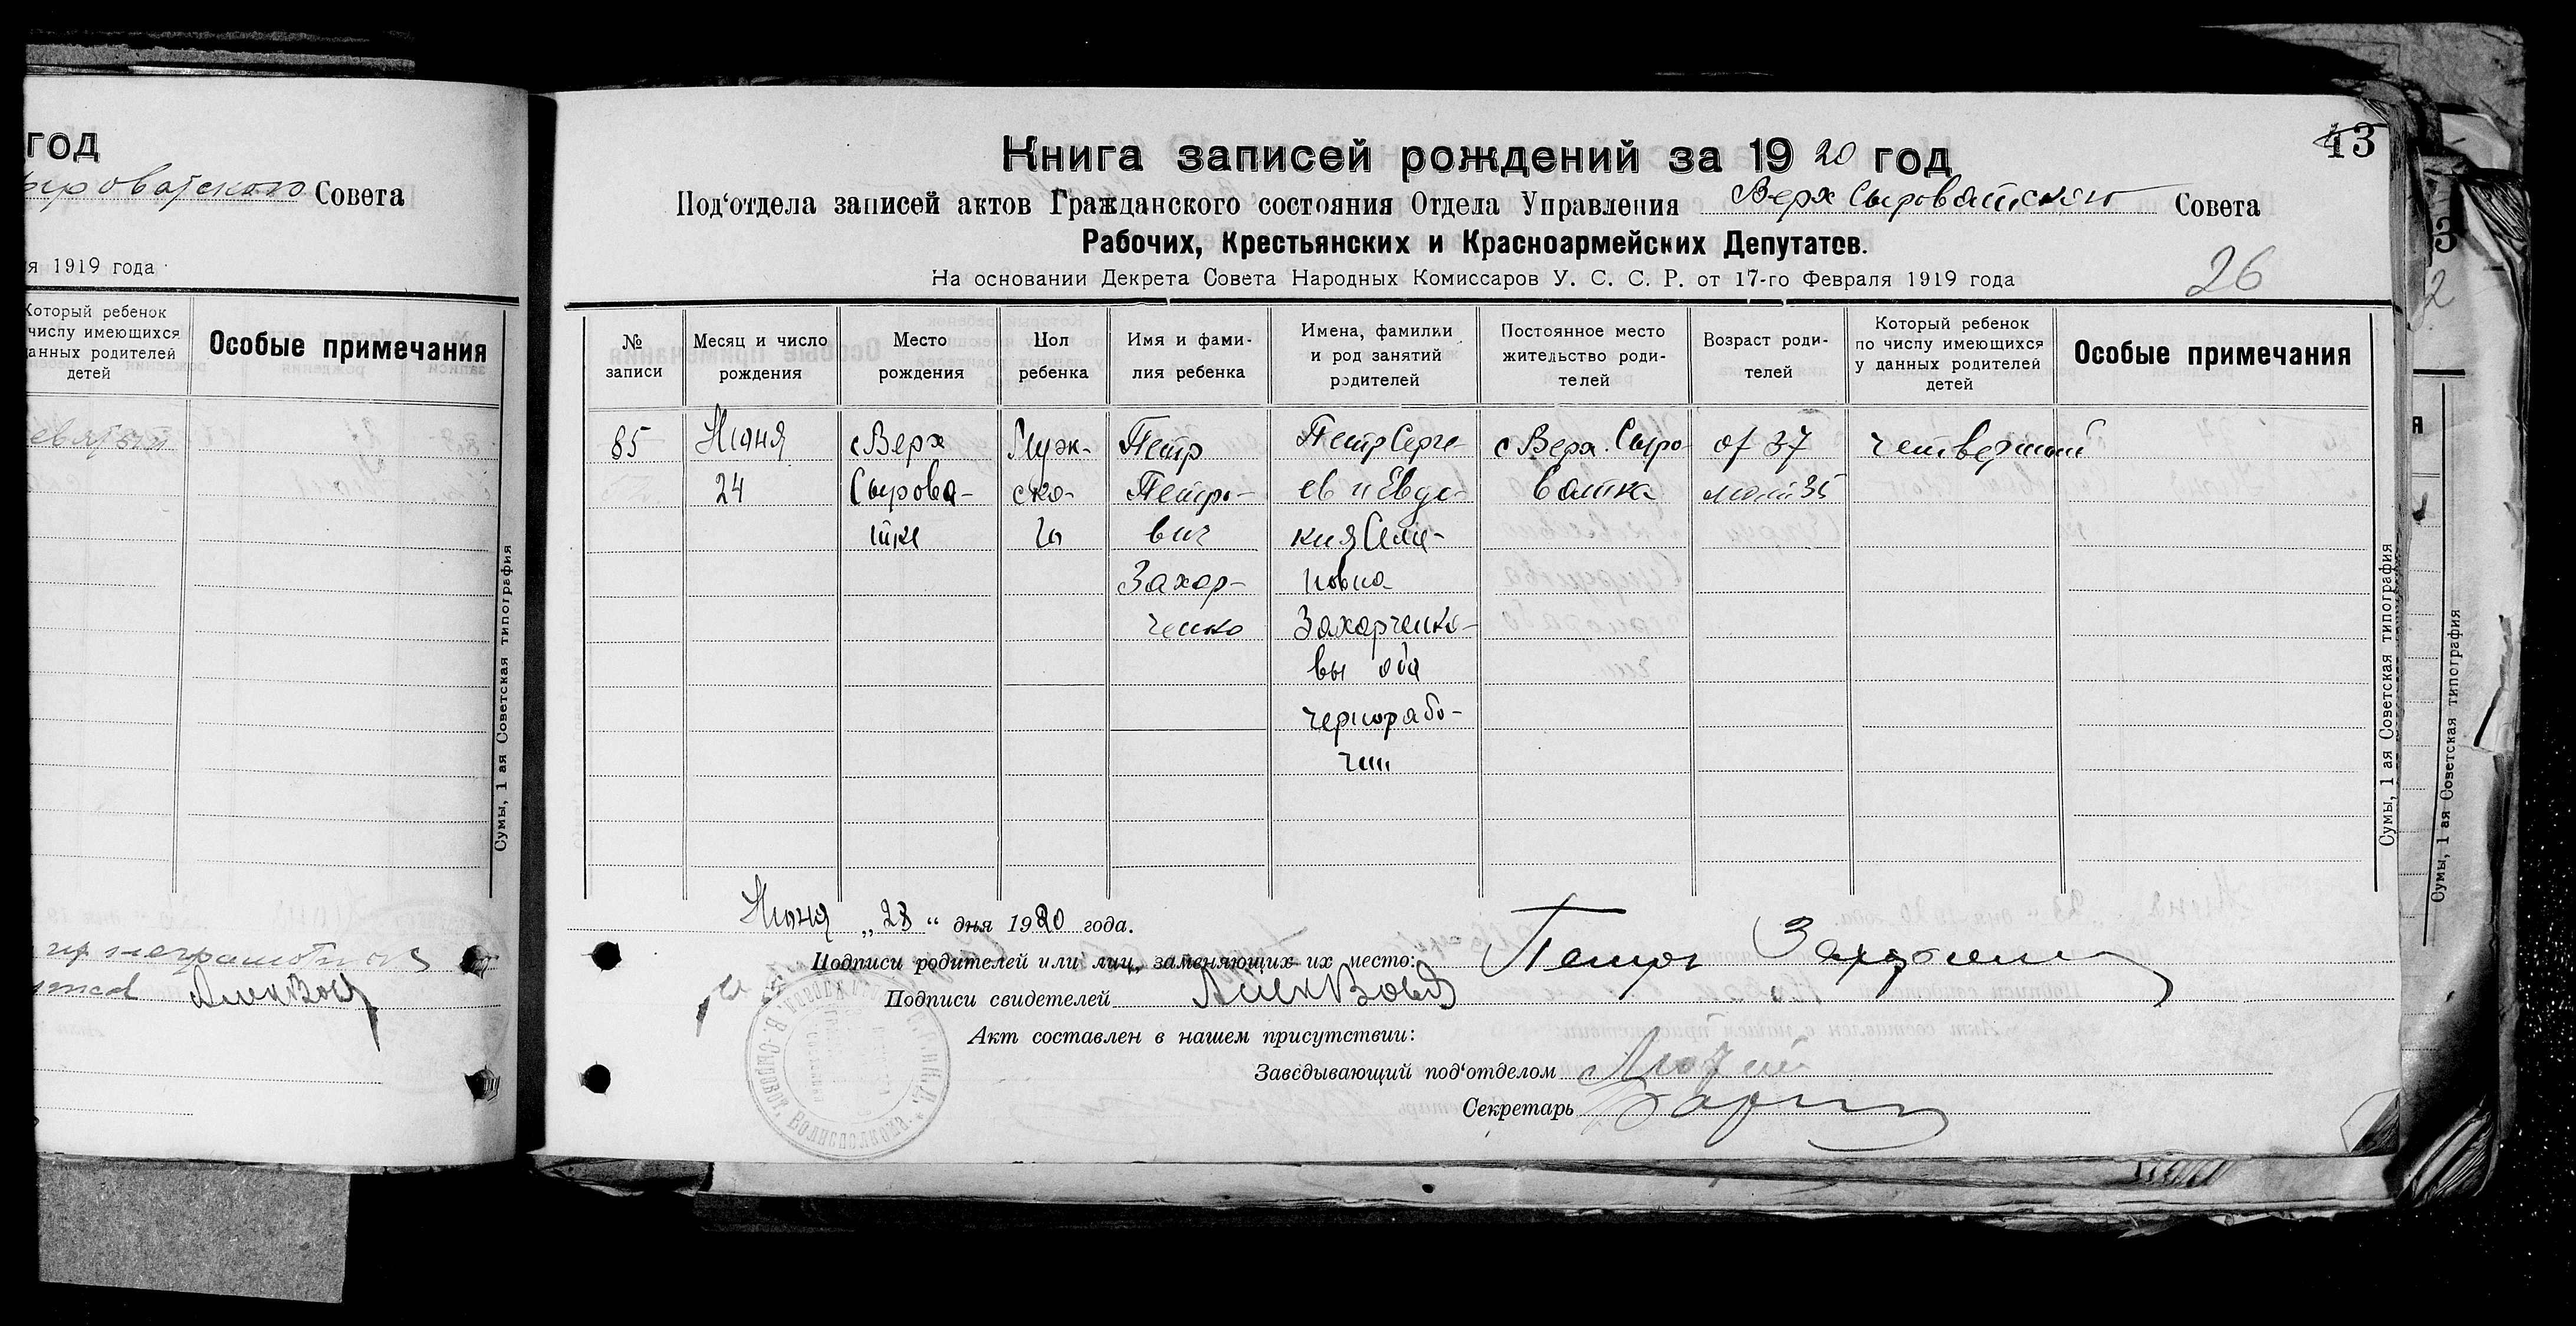 год
Сыроватского Совета
я 1919 года
Который ребенок
числу имеющихся
данных родителей
детей
Особые примечания
девятый
неграмотного
АлекВов
Сумы, 1 ая Советская типография
43
Книга записей рождений за 19 20 год
Под‘отдела записей актов Гражданского состояния Отдела Управления Верх Сыроватского Совета
Рабочих, Крестьянских и Красноармейских Депутатов.
На основании Декрета Совета Народных Комиссаров У. С. С. Р. от 17-го Февраля 1919 года
26
№ записи
Месяц и число рождения
Место рождения
Пол ребенка
Имя и фами-
лия ребенка
Имена, фамилки
и род занятий
родителей
Постоянное место
жительство роди-
телей
Возраст роди-
телей
Который ребенок
по числу имеющихся
у данных родителей
детей
Особые примечания
85 Июня с Верх Муж- Петр Петр Серге- с Верх. Сыро- от 37 четвертый
24 Сырова- ско- Петро- ев и Евдо- ватка мат 35
тке го вич кия Семе-
Захар- новна
ченко Захарченко-
вы оба
чернорабо-
чии
Июня „ 28 “ дня 1920 года.
Подписи родителей или лиц, заменяющих их место: Петр Захарченко
Подписи свидетелей АлекВов
Акт составлен в нашем присутствии:
Заведывающий под‘отделом
Секретарь
Сумы, 1 ая Советская типография
Сумы, 1 ая Советская типография